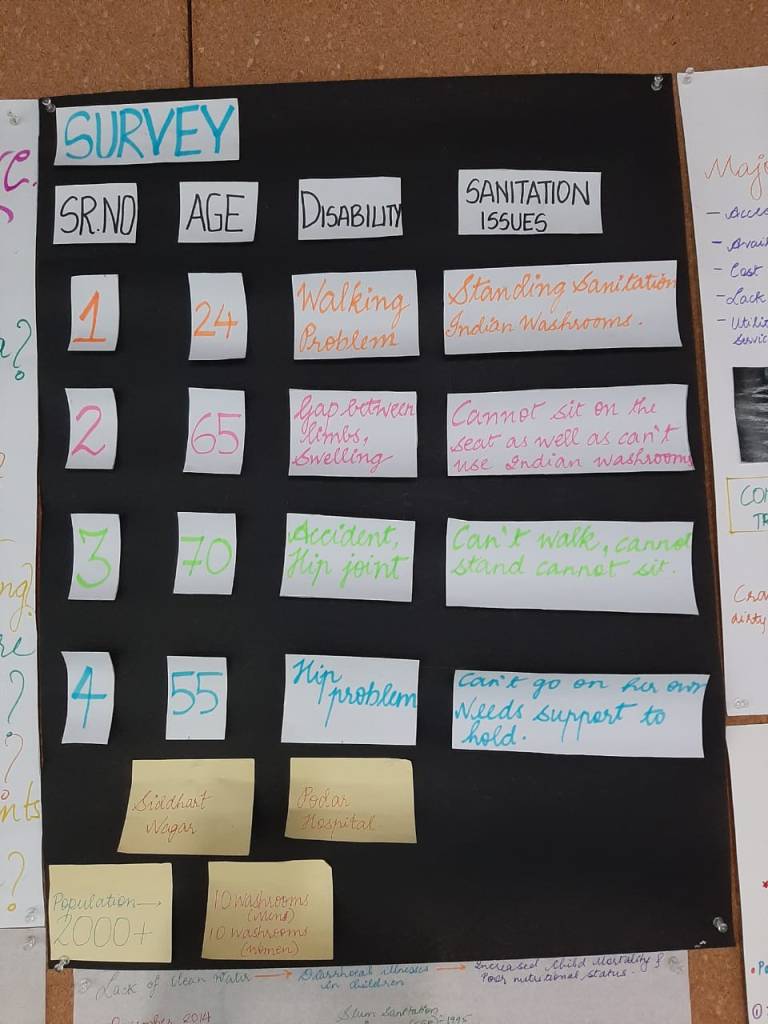 SURVEY
SR.NO AGE DISABILITY SANITATION
ISSUES
1 24 Walking
Problem
Standing Sanitation
Indian Washrooms.
2 65 Gap between
limbs,
Swelling
Cannot sit on the
seat as well as can't
use Indian washrooms
3 70 Accident,
Hip joint
Can't walk, cannot
stand cannot sit.
4 55 Hip
problem
Can't go on her own
Needs support to
hold.
Siddhart
Nagar
Podar
Hospital
Population →
2000+
10 washrooms
(Mens)
10 washrooms
(women)
Lack of clean Water → Diarrhoeal illnesses
in children → Increased Child Mortality &
Poor nutritional status.
2014
Slum Sanitation
1995
Majo
- Acces
- Avai
- Cost
- Lack
- Utilit
servic
CO
TR
Cra
dirty